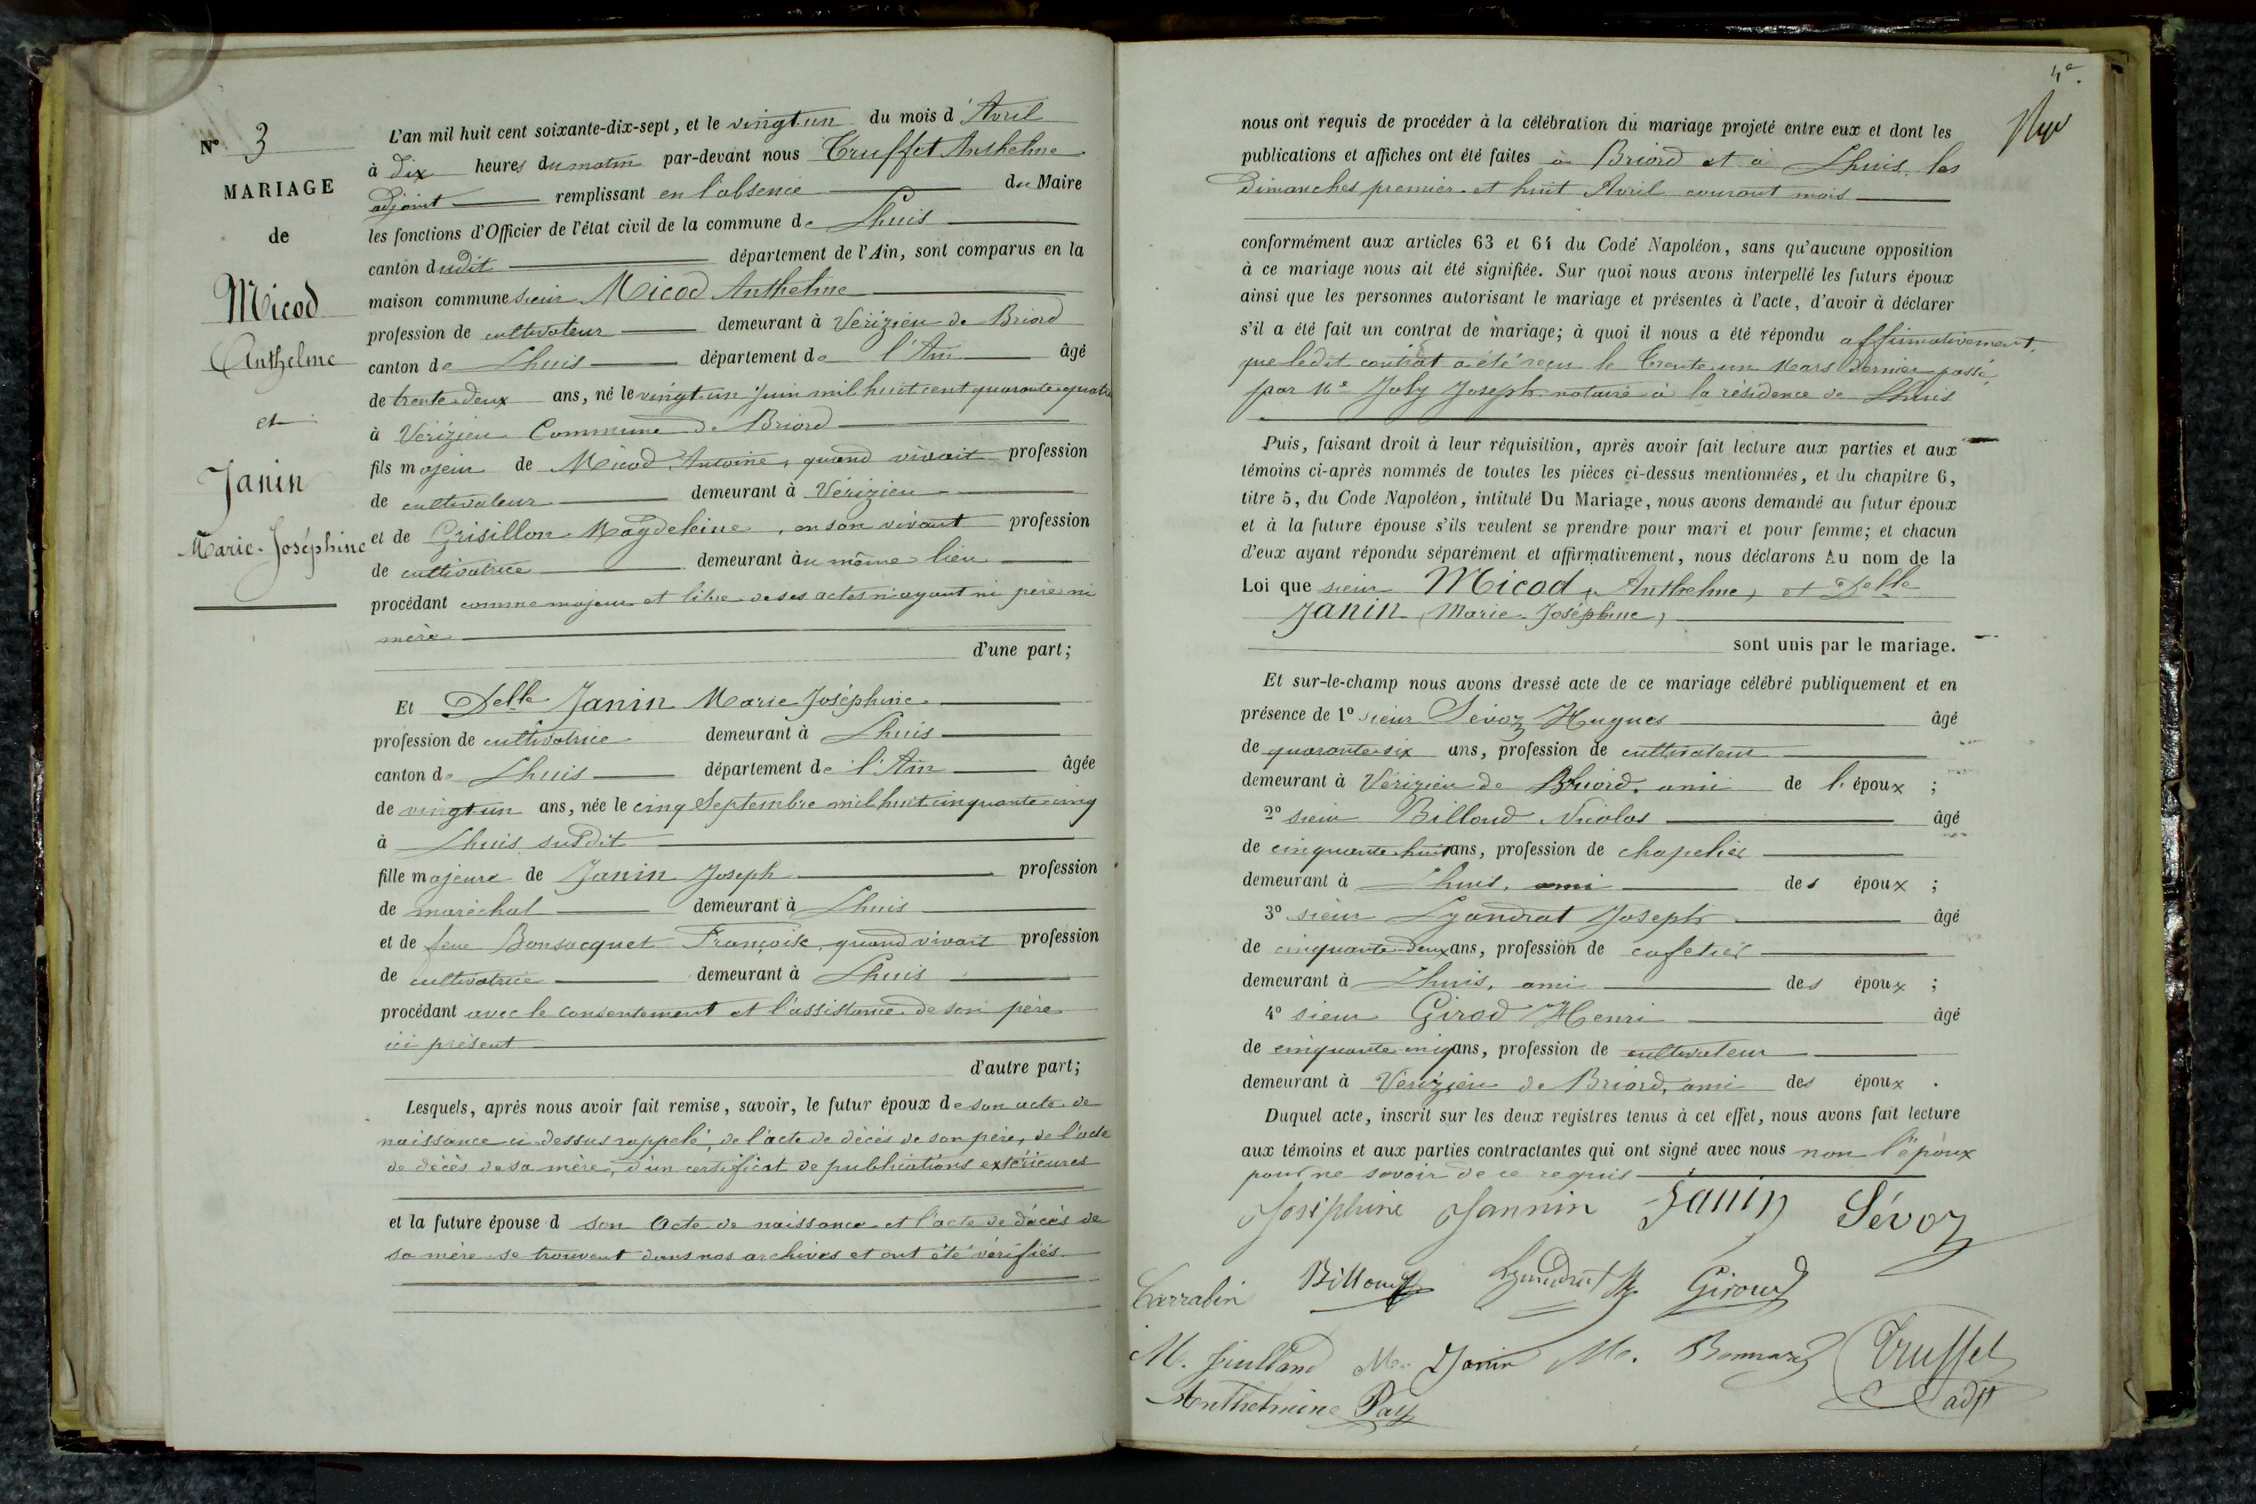 N° 3
MARIAGE
de
Micod
Anthelme
et
Janin
Marie-Joséphine
L'an mil huit cent soixante-dix-sept, et le vingt-un du mois d'Avril
à dix heures du matin par-devant nous Truffet Anthelme
adjoint remplissant en l'absence du Maire
les fonctions d'Officier de l'état civil de la commune de Lhuis
canton dudit département de l'Ain, sont comparus en la
maison commune sieur Micod Anthelme
profession de cultivateur demeurant à Vérizieu de Briord
canton de Lhuis département de l'Ain âgé
de trente-deux ans, né le vingt-un Juin mil huit cent quarante-quatre
à Vérizieu Commune de Briord
fils majeur de Micod Antoine, quand vivait profession
de cultivateur demeurant à Vérizieu
et de Grisillon Magdeleine, en son vivant profession
de cultivatrice demeurant au même lieu
procédant comme majeur et libre de ses actes n'ayant ni père ni
mère
d'une part;
Et Delle Janin Marie Joséphine
profession de cultivatrice demeurant à Lhuis
canton de Lhuis département de l'Ain âgée
de vingt-un ans, née le cinq Septembre mil huit cinquante-cinq
à Lhuis susdit
fille majeure de Janin Joseph profession
de maréchal demeurant à Lhuis
et de feue Bonsacquet Françoise, quand vivait profession
de cultivatrice demeurant à Lhuis
procédant avec le consentement et l'assistance de son père
ici présent
d'autre part;
Lesquels, après nous avoir fait remise, savoir, le futur époux de son acte de
naissance ci-dessus rappelé, de l'acte de décès de son père, de l'acte
de décès de sa mère, d'un certificat de publications extérieures
et la future épouse d son acte de naissance et l'acte de décès de
sa mère se trouvent dans nos archives et ont été vérifiés
4e.
nous ont requis de procéder à la célébration du mariage projeté entre eux et dont les
publications et affiches ont été faites à Briord et à Lhuis, les
Dimanches premier et huit Avril courant mois
conformément aux articles 63 et 64 du Code Napoléon, sans qu'aucune opposition
à ce mariage nous ait été signifiée. Sur quoi nous avons interpellé les futurs époux
ainsi que les personnes autorisant le mariage et présentes à l'acte, d'avoir à déclarer
s'il a été fait un contrat de mariage; à quoi il nous a été répondu affirmativement,
que ledit contrat a été reçu le trente-un Mars dernier passé
par Me Joly Joseph notaire à la résidence de Lhuis
Puis, faisant droit à leur réquisition, après avoir fait lecture aux parties et aux
témoins ci-après nommés de toutes les pièces ci-dessus mentionnées, et du chapitre 6,
titre 5, du Code Napoléon, intitulé Du Mariage, nous avons demandé au futur époux
et à la future épouse s'ils veulent se prendre pour mari et pour femme; et chacun
d'eux ayant répondu séparément et affirmativement, nous déclarons Au nom de la
Loi que sieur Micod, Anthelme, et Delle
Janin, Marie Joséphine,
sont unis par le mariage.
Et sur-le-champ nous avons dressé acte de ce mariage célébré publiquement et en
présence de 1° sieur Sévoz Hugues âgé
de quarante-six ans, profession de cultivateur
demeurant à Vérizieu de Briord, ami de l'époux ;
2° sieur Billoud Nicolas âgé
de cinquante-huit ans, profession de chapelier
demeurant à Lhuis, ami des époux ;
3° sieur Lyandrat Joseph âgé
de cinquante-deux ans, profession de cafetier
demeurant à Lhuis, ami des époux ;
4° sieur Girod Henri âgé
de cinquante-cinq ans, profession de cultivateur
demeurant à Vérizieu de Briord, ami des époux .
Duquel acte, inscrit sur les deux registres tenus à cet effet, nous avons fait lecture
aux témoins et aux parties contractantes qui ont signé avec nous non l'époux
pour ne savoir de ce requis
Joséphine Jannin Janin Sévoz
Carrabin Billoud Lyandrat Giroud
M. Juilland M. Janin M. Bonnard Truffet
Anthelmine Pay adjt